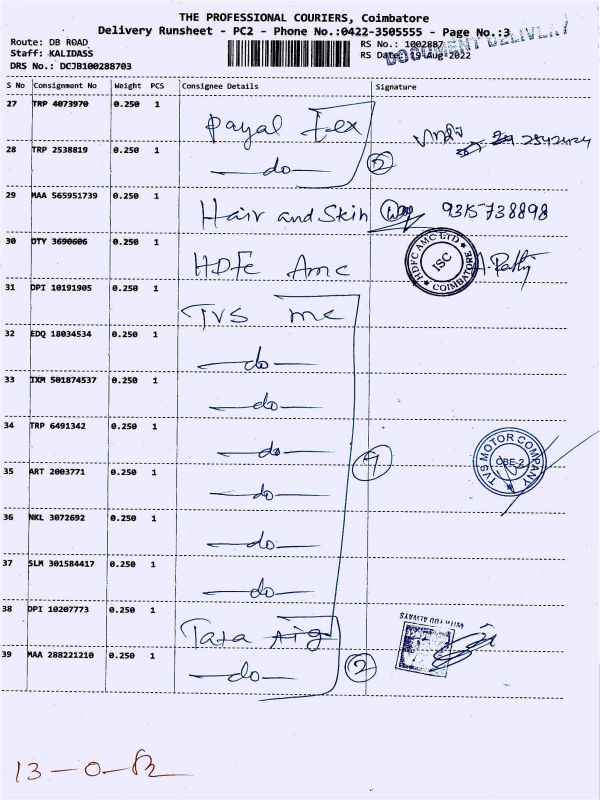 THE PROFESSIONAL COURIERS, Coimbatore
Delivery Runsheet - PC2 - Phone No.:0422-3505555 - Page No.:3
Route: DB ROAD
Staff: KALIDASS
DRS No.: DCJB100288703
RS No.: 1002887
RS Date: 19 Aug 2022
DOCUMENT DELIVERY
S No Consignment No Weight PCS Consignee Details Signature
27 TRP 4073970 0.250 1 Payal
28 TRP 2538819 0.250 1 do 2
29 MAA 565951739 0.250 1 Hair and Skin 9315738898
30 DTY 3690606 0.250 1 HDFC Amc
HDFC AMC LTD ISC COIMBATORE
31 DPI 10191905 0.250 1 TVS mc
32 EDQ 18034534 0.250 1 do
33 IXM 501874537 0.250 1 do
34 TRP 6491342 0.250 1 do 7
TVS MOTOR COMPANY OBE-2
35 ART 2003771 0.250 1 do
36 NKL 3072692 0.250 1 do
37 SLM 301584417 0.250 1 do
38 DPI 10207773 0.250 1 Tata Aig
WITH YOU ALWAYS
39 MAA 288221210 0.250 1 do 2